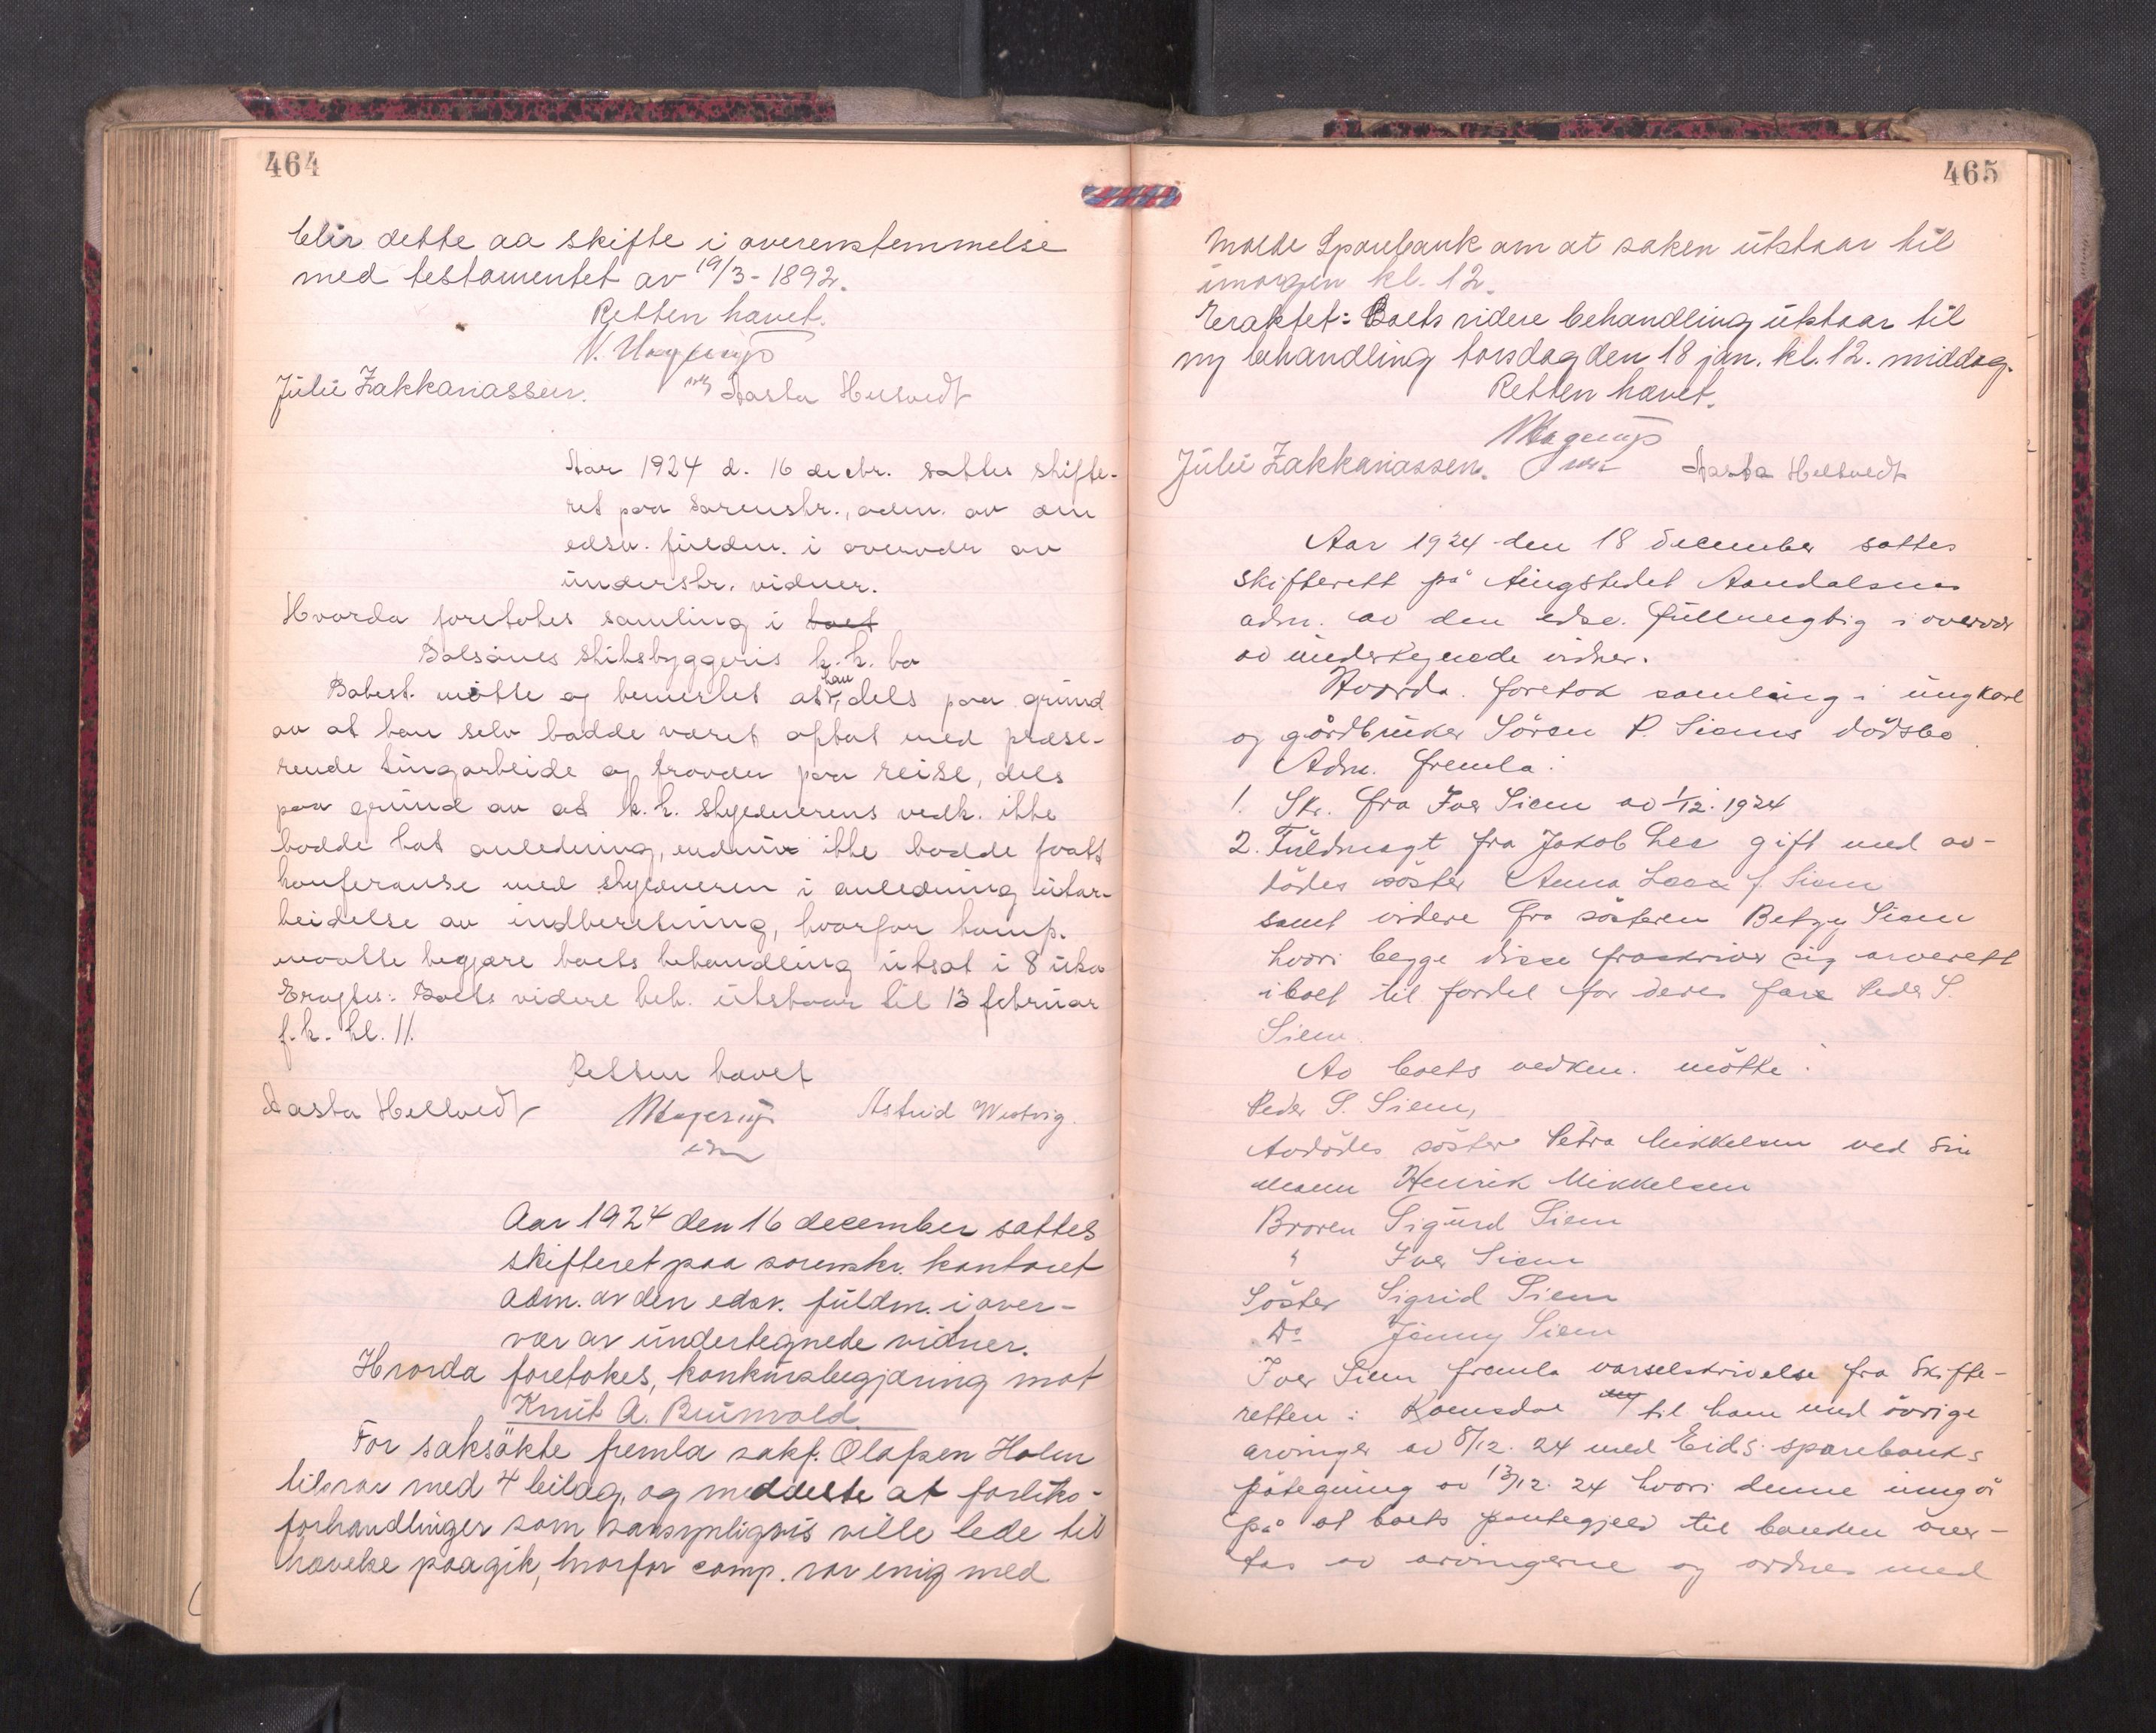 464
blir dette aa skifte i overenstemmelse
med testamentet av 19/3-1892.
Retten hævet.
N. Hagerup
Julie Zakkariassen. Aasta Hellvedt
Aar 1924 d. 16 decbr. sattes skifte-
ret paa sorenskr., adm. av den
edsv. fuldm. i overvær av
underskr. vidner.
Hvorda foretokes samling i boet
Bolsönes Skibsbyggeris k.k. bo
Bobest. møtte og bemerket at han, dels paa grund
av at han selv hadde været optat med presse-
rende tingarbeide og fravær paa reise, dels
paa grund av at k.k. skyldnerens vedk. ikke
hadde hat anledning, endnu ikke hadde faatt
konferanse med skyldneren i anledning utar-
beidelse av indberetning, hvorfor komp.
maatte begjære boets behandling utsat i 8 uker
Eragtes: Boets videre beh. utstaar til 13 februar
f.k. kl. 11.
Retten hævet
Aasta Hellvedt NHagerup Astrid Westvig.
Aar 1924 den 16 december sattes
skifteret paa sorenskr. kontoret
adm. av den edsv. fuldm. i over-
vær av undertegnede vidner.
Hvorda foretokes, konkursbegjæring mot
Knut A. Brunvold.
For saksökte fremla sakf. Olafsen Holm
tilsvar med 4 bilag, og meddelte at forliks-
forhandlinger som sansynligvis ville lede til
hævelse paagik, hvorfor comp. var enig med
465
Molde Sparebank om at saken utstaar til
imorgen kl. 12.
Eraktet: Boets videre behandling utstaar til
ny behandling torsdag den 18 jan. kl. 12. middag.
Retten hævet.
NHagerup
Julie Zakkariassen. Aasta Hellvedt
Aar 1924 den 18 december sattes
skifterett på tingstedet Aandalsnes
adm. av den edsv. fullmegtig i overvær
av undertegnede vidner.
Hvorda. foretok samling i ungkarl
og gårdbruker Sören P. Siems dödsbo
Adm. fremla:
1. Skr. fra Iver Siem av 1/12. 1924
2. Fuldmagt fra Jakob Lee gift med av-
dödes söster Anna f. Siem
samt videre fra sösteren Betzy Siem
hvori begge disse fraskriver sig arverett
i boet til fordel for deres far Peder S.
Siem.
Av boets vedkm. mötte:
Peder S. Siem,
Avdödes söster Petra Mikkelsen ved sin
mann Henrik Mikkelsen
Broren Sigurd Siem
" Iver Siem
Söster Sigrid Siem
Do Jenny Siem
Iver Siem fremla varselskrivelse fra Skifte-
retten i Romsdal til ham med övrige
arvinger av 8/12. 24 med Eids sparebanks
påtegning av 13/12. 24 hvori denne inngår
på at boets pantegjeld til banken over-
tas av arvingerne og ordnes med